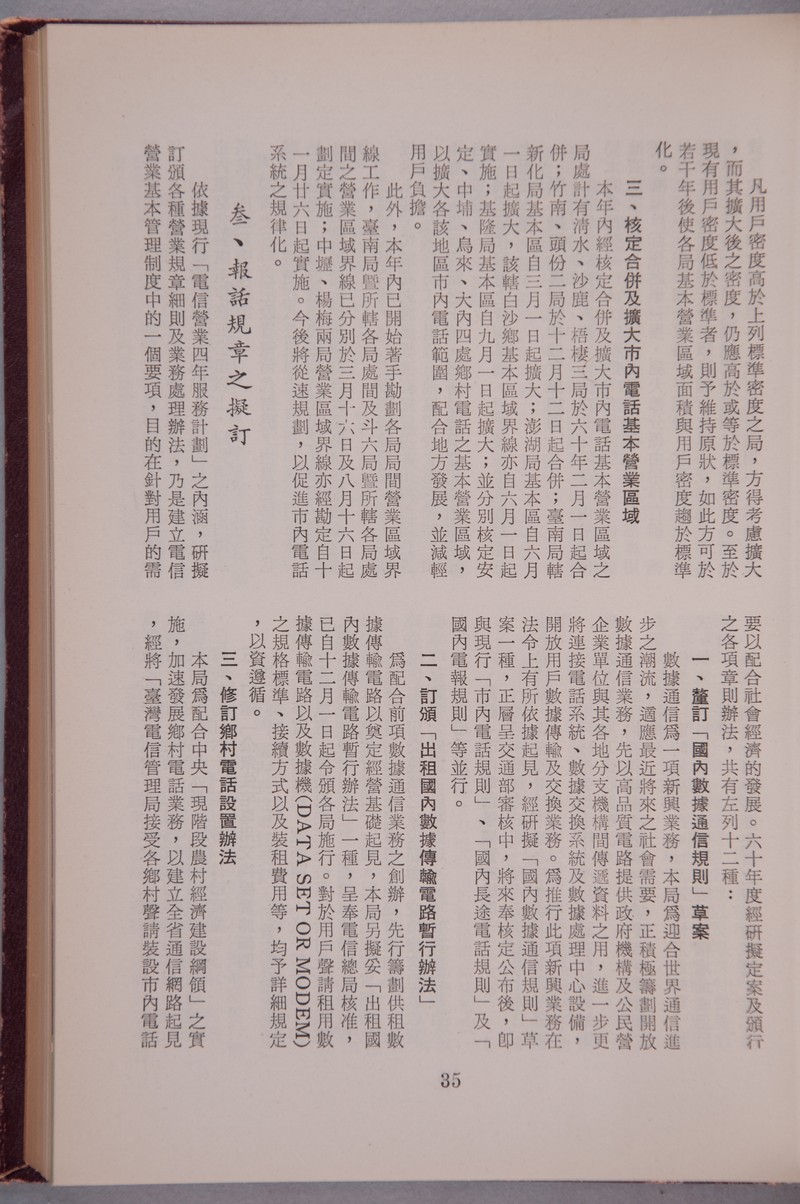 凡用戶密度高於上列標準密度之局，方得考慮擴大
，而其擴大後之密度，仍應高於或等於標準密度。至於
現有用戶密度低於標準者，則予維持原狀，如此方可於
若干年後使各局基本營業區域面積與用戶密度趨於標準
化。
三、核定合併及擴大市內電話基本營業區域
本年內經核定合併及擴大市內電話基本營業區域之
局處計有清水、沙鹿、梧棲三局於六十年二月一日起合
併；竹南、頭份二局於十二月十二日起合併；臺南局轄
新化局基本區自三月一日起擴大；澎湖局基本區自六月
一日起擴大，該轄白沙鄉基本區域界線亦自六月一日起
實施；基隆局基本區自九月一日起擴大；並分別核定安
定、中埔、烏來、大內四處鄉村電話之基本營業區域，
以擴大各該地區市內電話範圍，配合地方發展，並減輕
用戶負擔。
此外，本年內已開始著手勘劃各局局間營業區域界
線工作，臺南局暨所轄各局處間及斗六局暨所轄各局處
間之營業區域界線已分別於三月十六日及八月十六日起
劃定實施；中壢、楊梅兩局營業區域界線亦經勘定自十
一月廿六日起實施。今後將從速規劃，以促進市內電話
系統之規律化。
叁、報話規章之擬訂
依據現行「電信營業四年服務計劃」之內涵，研擬
訂頒各種營業規章細則及業務處理辦法，乃是建立電信
營業基本管理制度中的一個要項，目的在針對用戶的需
要以配合社會經濟的發展。六十年度經研擬定案及頒行
之各項章則辦法，共有左列十二種：
一、釐訂「國內數據通信規則」草案
數據通信爲一項新興業務，本局爲迎合世界通信進
步之潮流，適應最近將來之社會需要，正積極籌劃開放
數據通信業務，先以高品質電路提供政府機構及公民營
企業單位與其各地分支機構間傳遞資料之用，進一步更
將連接電話系統、數據交換系統及數據處理中心設備，
開放用戶數據傳輸及交換業務。爲推行此項新興業務在
法令上有所依據起見，經研擬「國內數據通信規則」草
案一種，正層呈交通部審核中，將來奉核定公布後，卽
與現行「市內電話規則」、「國內長途電話規則」及「
國內電報規則」等並行。
二、訂頒「出租國內數據傳輸電路暫行辦法」
爲配合前項數據通信業務之創辦，先行籌劃供租數
據傳輸電路以奠定經營基礎起見，本局另擬妥「出租國
內數據傳輸電路暫行辦法」一種，呈奉電信總局核准，
已自十二月一日起令頒各局施行。對於用戶聲請租用數
據傳輸電路以及數據機(DATA SET OR MODEM)
之規格標準、接續方式以及裝租費用等，均予詳細規定
，以資遵循。
三、修訂鄉村電話設置辦法
本局爲配合中央「現階段農村經濟建設綱領」之實
施，加速發展鄉村電話業務，以建立全省通信網路起見
，經將「臺灣電信管理局接受各鄉村聲請裝設市內電話
35